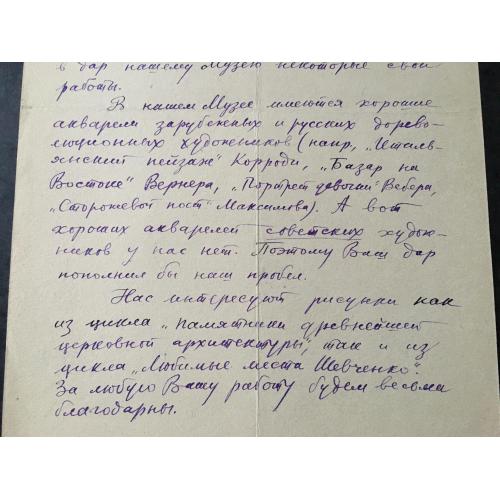 в дар нашему Музею некоторые свои
работы.
В нашем Музее имеются хорошие
акварели зарубежных и русских дорево-
люционных художников (напр., „Италь-
янский пейзаж" Корроди, „Базар на
Востоке" Вернера, „Портрет девочки" Вебера,
„Сторожевой пост" Максимова). А вот
хороших акварелей советских худож-
ников у нас нет. Поэтому Ваш дар
пополнил бы наш пробел.
Нас интересуют рисунки как
из цикла „Памятники древнейшей
церковной архитектуры", так и из
цикла „Любимые места Шевченко".
За любую Вашу работу будем весьма
благодарны.